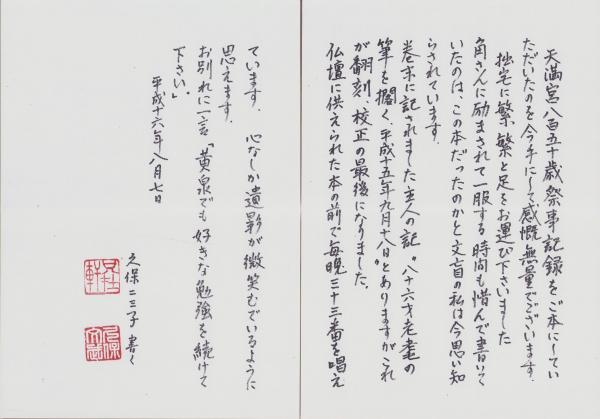 天満宮八百五十歳祭事記録をご本にしてい
ただいたのを今手にして感慨無量でございます.
拙宅に繁繁と足をお運び下さいました
角さんに励まされて一服する時間も惜んで書いて
いたのは、この本だったのかと文盲の私は今思い知
らされています.
巻末に記されました主人の記〝八十六才老耄の
筆を擱く、平成十五年九月十八日〟とありますがこれ
が翻刻、校正の最後になりました.
仏壇に供えられた本の前で毎晩三十三番を唱え
ています. 心なしか遺影が微笑むでいるように
思えます.
お別れに一言「黄泉でも好きな勉強を続けて
下さい」
平成十六年八月七日
久保二三子 書く